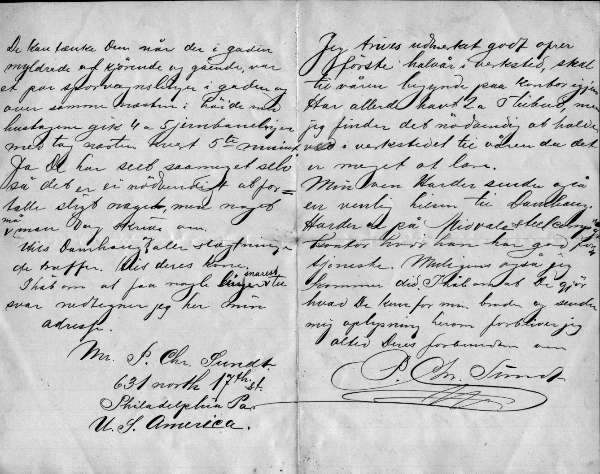 De kan tænke Dem når der i gaden
myldrede af kjørende og gående, var
et par sporvognslinjer i gaden og
over samme næsten i høide med
hustagene gik 4 a 5 jernbanelinjer
med tog næsten hvert 5te minut
Ja De har seet saameget selv
så det er ei nødvendigt at for=
talle sligt noget, men noget
må man dog skrive om.
Hils Damhaug & alle slægtninge
de træffer. Hils deres Kone.
I håb om at faa nogle linjer snarest til
svar nedtegner jeg her min
adresse.
Mr. P. Chr. Sundt.
631 north 17th st.
Philadelphia Pa.
U. S. America.
Jeg trives udmerket godt over
første halvår i verksted, skal
til våren begynde paa kontor igjen
Har allerede havt 2a tilbud men
jeg finder det nødvendig at holde
ved i verkstedet til våren da det
er meget at lære.
Min ven Harder sender også
en venlig hilsen til Damhaug.
Harder er på Midvale steelcomp
kontor hvor han har god for
tjeneste. Muligens også jeg
kommer did, I håb om at De gjør
hvad De kan for min broder og sender
mig oplysning herom forbliver jeg
altid Deres forbundne ven
P. Chr. Sundt